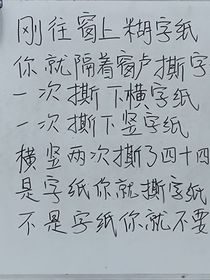 刚往窗上糊字纸
你就隔着窗户撕字
一次撕下横字纸
一次撕下竖字纸
横竖两次撕了四十四
是字纸你就撕字纸
不是字纸你就不要